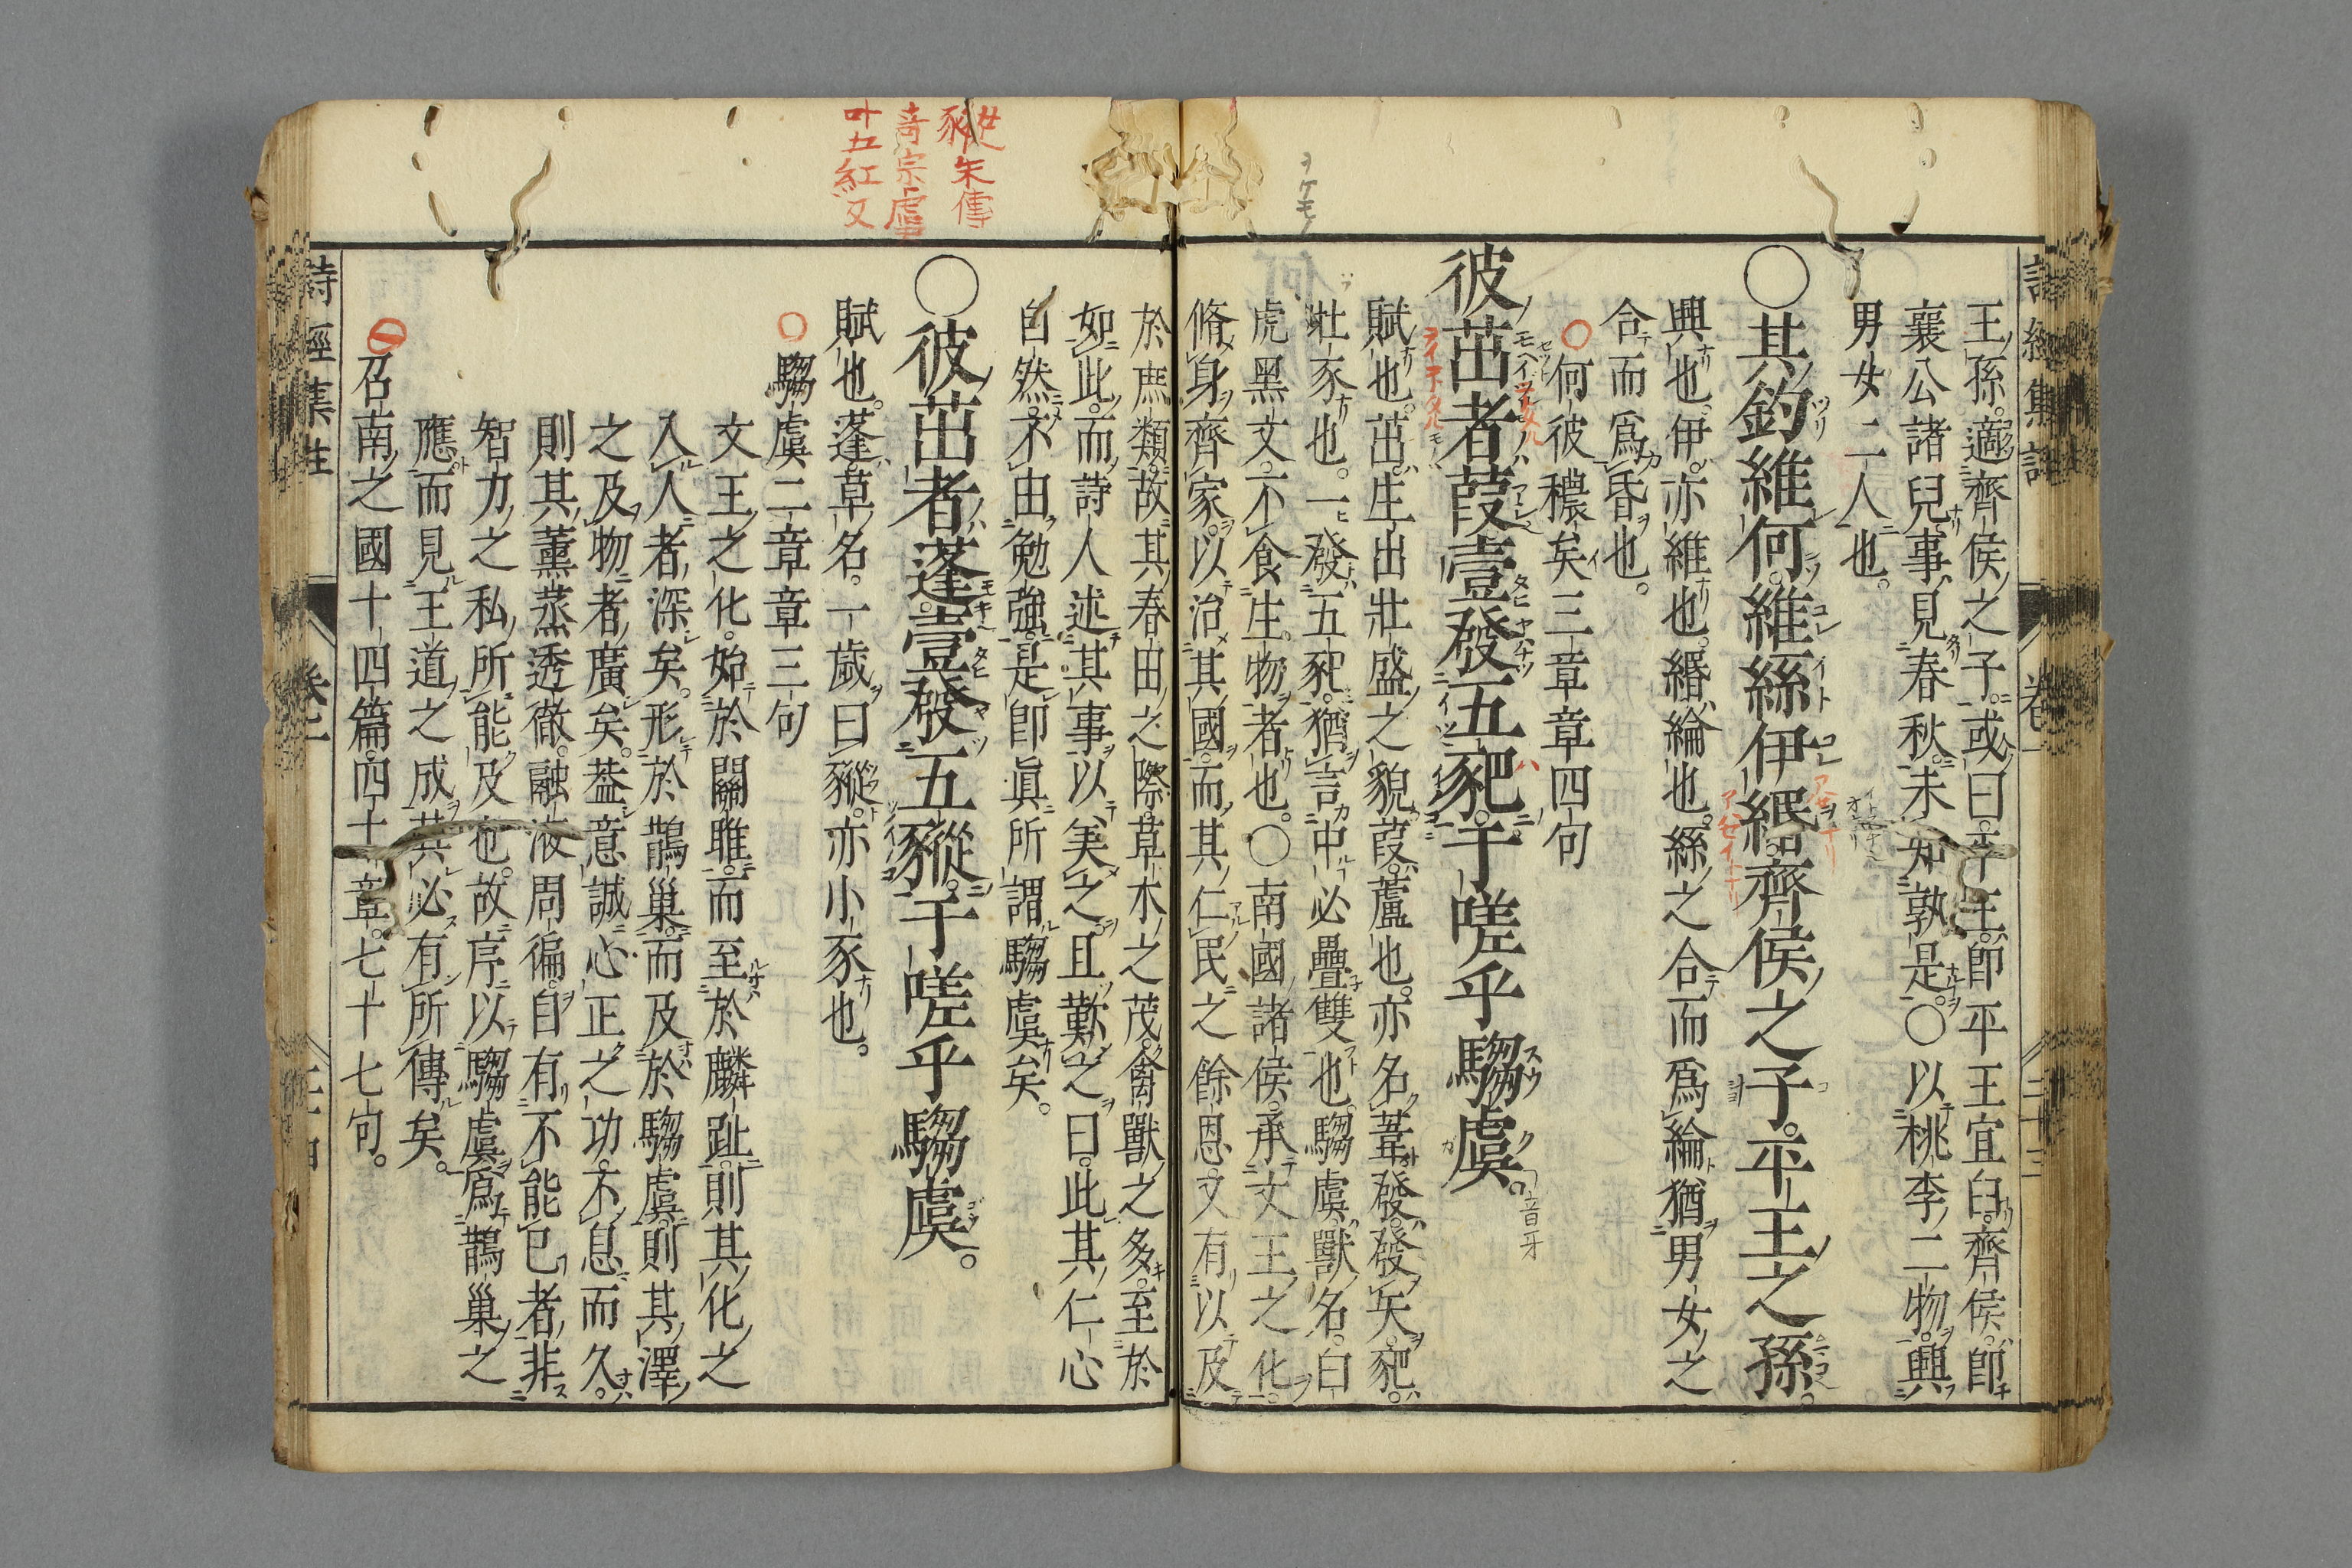 王孫。適齊侯之子。或曰。平王。即平王宜臼。齊侯。即
襄公諸兒事。見春秋。未知孰是。○以桃李二物。興
男女二人也。
○其釣維何。維絲伊緡。齊侯之子。平王之孫。
興也。伊。亦維也。緡。綸也。絲之合而爲綸。猶男女之
合而爲昏也。
○何彼穠矣三章章四句
彼茁者葭。壹發五豝。于嗟乎騶虞。
音牙
賦也。茁。生出壯盛之貌。葭。蘆也。亦名葦。發。發矢。豝。
牡豕也。一發五豝。猶言中必疊雙也。騶虞。獸名。白
虎黑文。不食生物者也。○南國諸侯。承文王之化。
脩身齊家。以治其國。而其仁民之餘恩。又有以及
於庶類。故其春田之際。草木之茂。禽獸之多。至於
如此。而詩人述其事。以美之。且歎之曰。此其仁心
自然。不由勉強。是即眞所謂騶虞矣。
○彼茁者蓬。壹發五豵。于嗟乎騶虞。
賦也。蓬。草名。一歲曰豵。亦小豕也。
○騶虞二章章三句
文王之化。始於關雎。而至於麟趾。則其化之
入人者深矣。形於鵲巢。而及於騶虞。則其澤
之及物者廣矣。葢意誠心正之功。不息而久。
則其薰蒸透徹。融液周徧。自有不能已者。非
智力之私所能及也。故序以騶虞爲鵲巢之
應。而見王道之成。其必有所傳矣。
召南之國十四篇。四十章。七十七句。
豵朱傳
音宗虞
叶五紅反
詩經集註
卷一
二十三
詩經集註